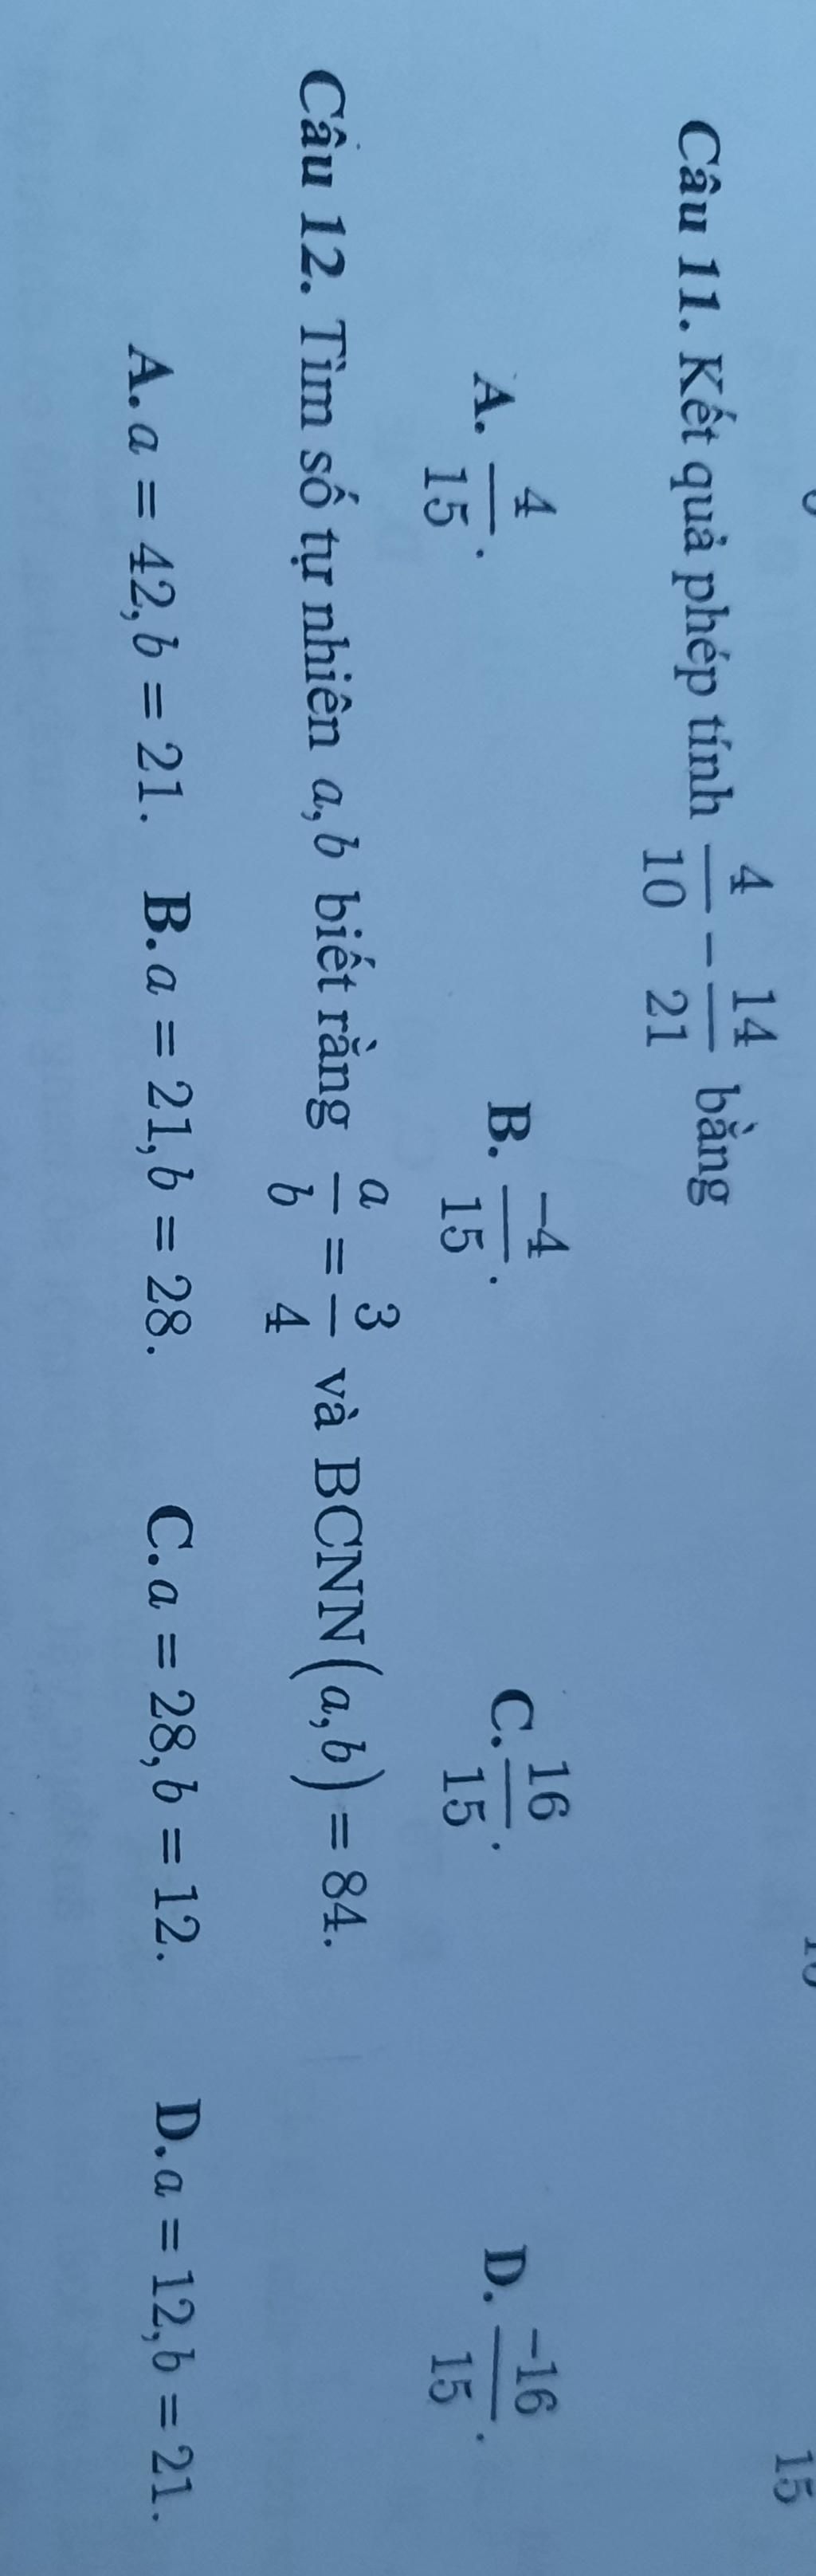 15
Câu 11. Kết quả phép tính 4/10 − 14/21 bằng
A. 4/15. B. −4/15. C. 16/15. D. −16/15.
Câu 12. Tìm số tự nhiên a,b biết rằng a/b = 3/4 và BCNN(a,b) = 84.
A. a = 42,b = 21. B. a = 21,b = 28. C. a = 28,b = 12. D. a = 12,b = 21.